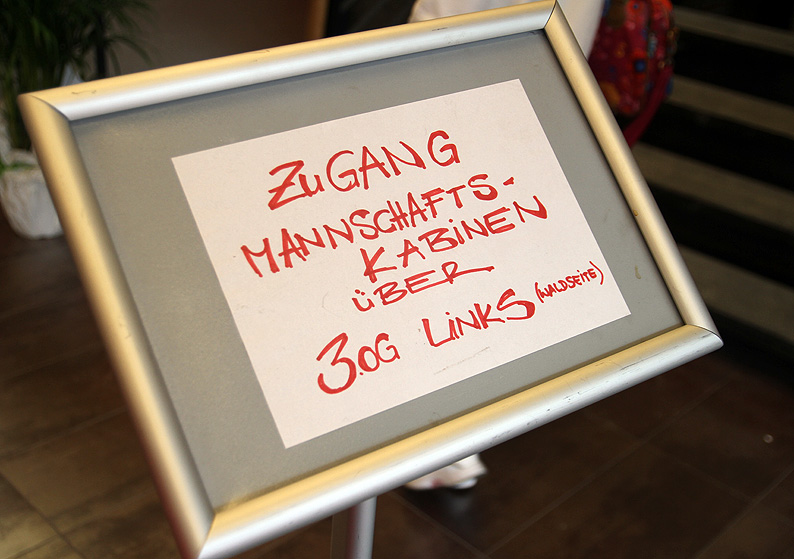 ZUGANG
MANNSCHAFTS-
KABINEN
ÜBER
3.OG LINKS (WALDSEITE)